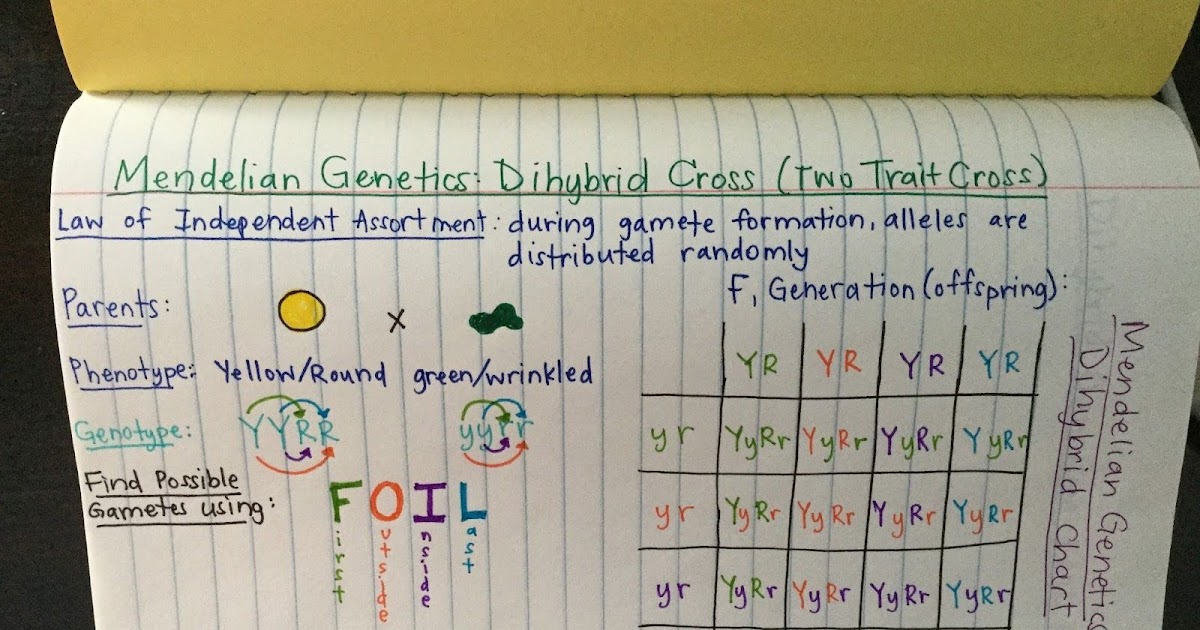 Mendelian Genetics: Dihybrid Cross (Two Trait Cross)
Law of Independent Assortment: during gamete formation, alleles are
distributed randomly
Parents: X
Phenotype: Yellow/Round green/wrinkled
Genotype: YYRR yyrr
Find Possible
Gametes using:
FOIL
First
Outside
Inside
Last
F, Generation (offspring):
YR YR YR YR
yr YyRr YyRr YyRr YyRr
yr YyRr YyRr YyRr YyRr
yr YyRr YyRr YyRr YyRr
Mendelian Genetics
Dihybrid Chart